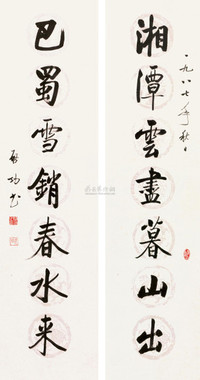 一九八七年秋日
湘潭雲盡暮山出
巴蜀雪銷春水来
啓功書